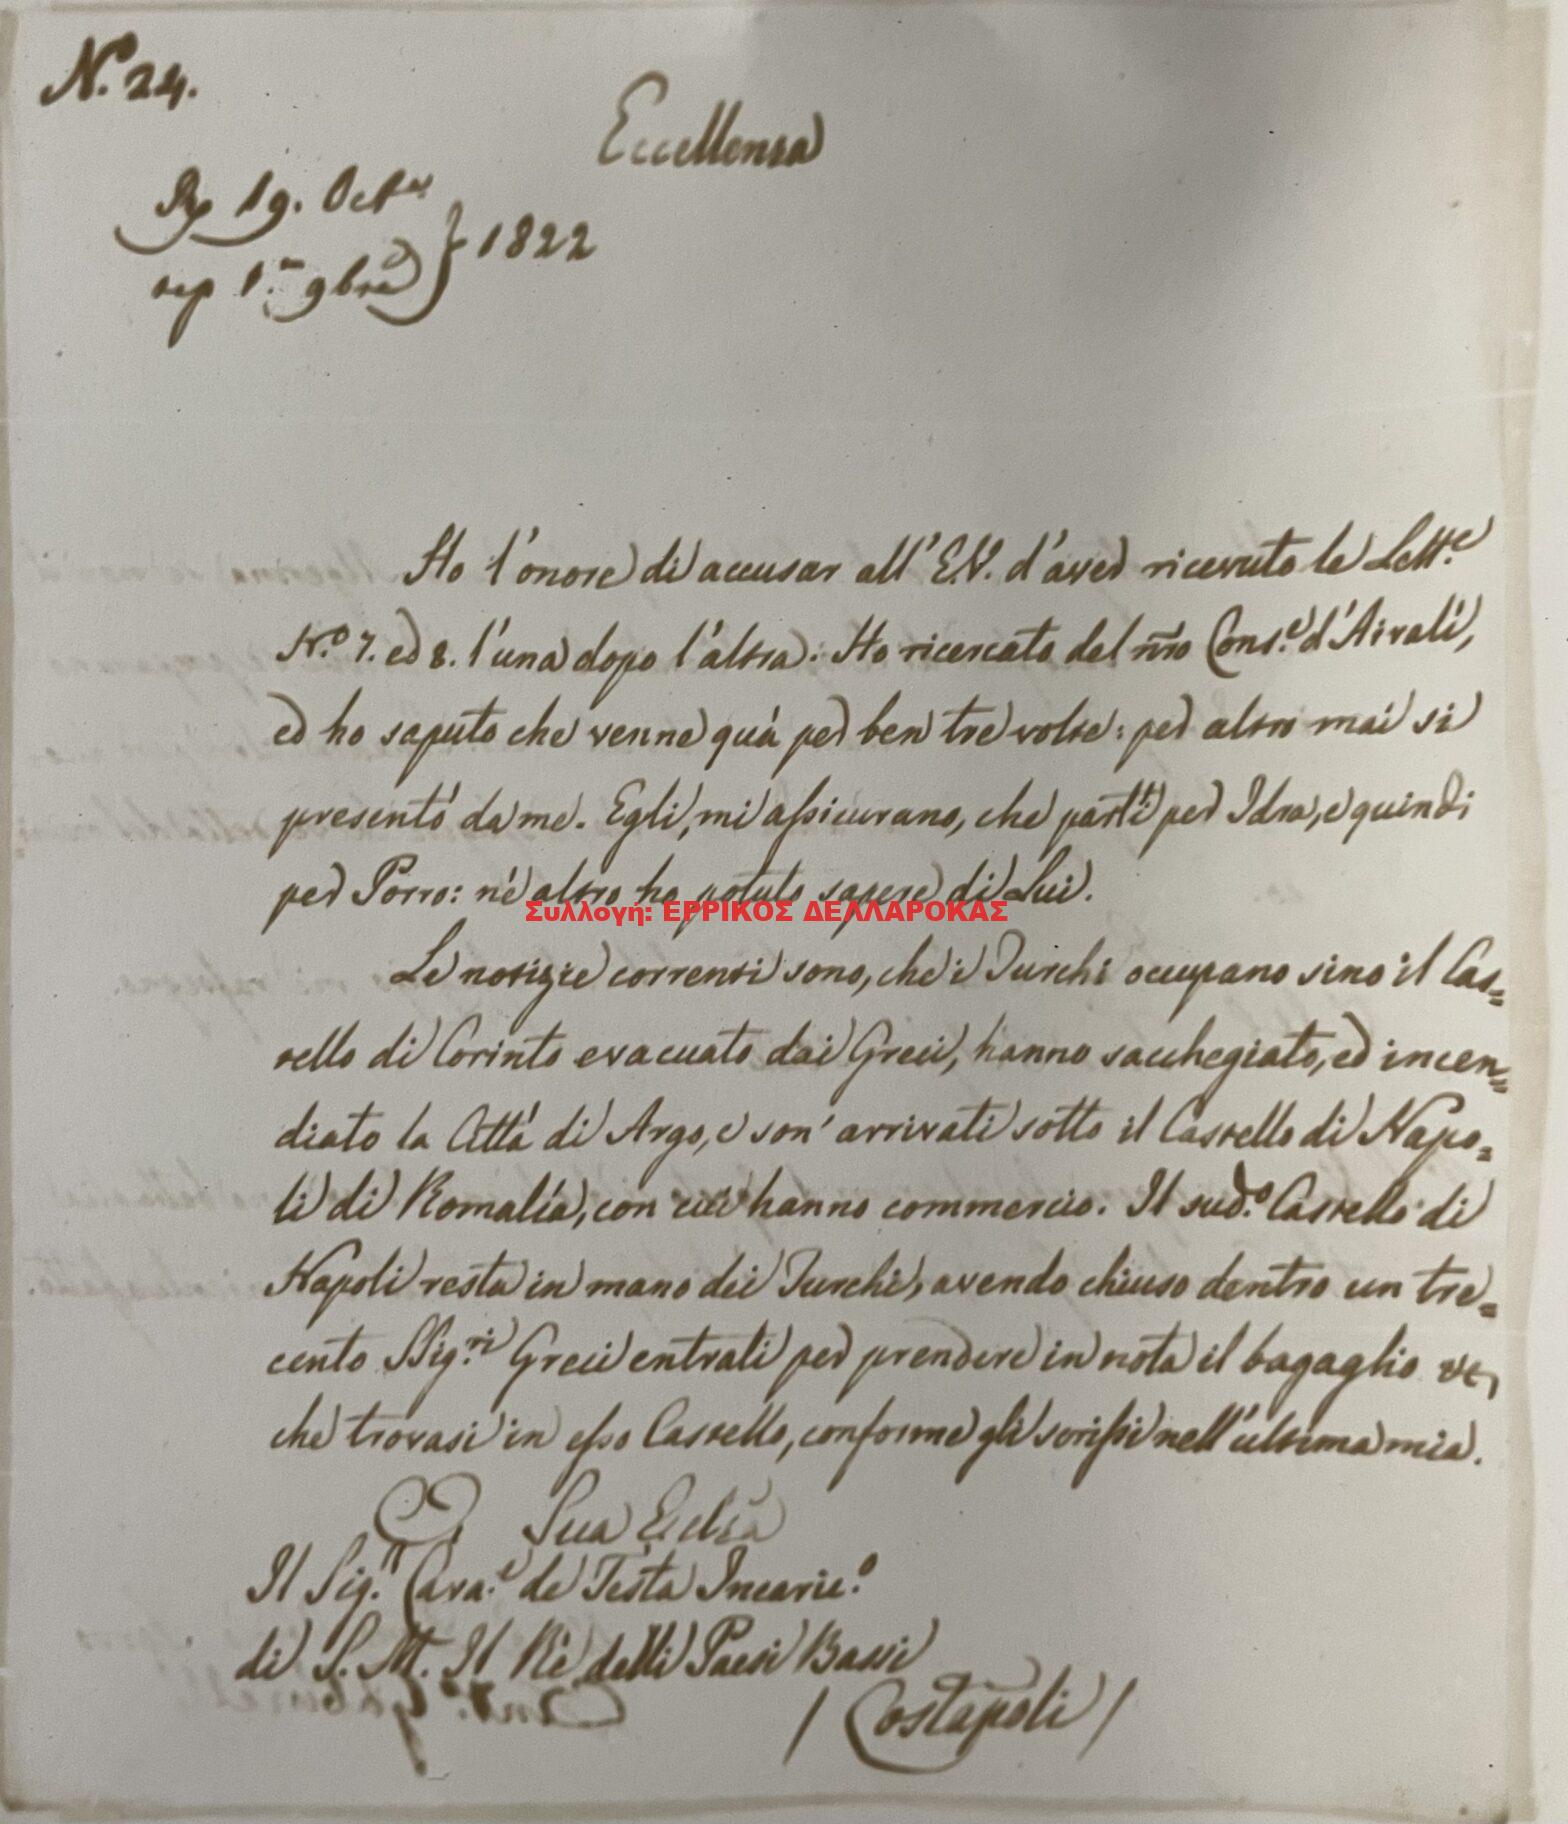 N.º 24.
Eccellenza
Rp 19. Octre
rep 1.mo 9bre } 1822
Ho l'onore di accusar all' E.V. d'aver ricevuto le Lett.e
N.º 7. ed 8. l'una dopo l'altra. Ho ricercato del nro Cons.e d'Aivalì,
ed ho saputo che venne quà per ben tre volte: per altro mai si
presentò da me. Egli, mi assicurano, che partì per Idra, e quindi
per Porro: nè altro ho potuto sapere di Lui.
Συλλογή: ΕΡΡΙΚΟΣ ΔΕΛΛΑΡΟΚΑΣ
Le notizie correnti sono, che i Turchi occupano sino il Cas=
tello di Corinto evacuato dai Greci, hanno sacchegiato, ed incen=
diato la Città di Argo, e son' arrivati sotto il Castello di Napo=
li di Romalía, con cui hanno commercio. Il sud.º Castello di
Napoli resta in mano dei Turchi, avendo chiuso dentro un tre=
cento SSig.ri Greci entrati per prendere in nota il bagaglio
che trovasi in esso Castello, conforme gli scrissi nell'ultima mia.
Sua Eccelza
Il Sig.r Cava.e de Testa Incaric.º
di S. M. Il Rè delli Paesi Bassi
/ Costapoli /